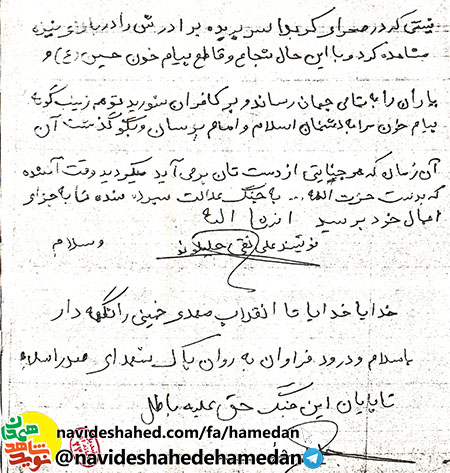 نیستی که در صحرای کربلا سر بریده برادرش را در بالای نیزه
مشاهده کرد و با این حال شجاع و قاطع پیام خون حسین (ع) و
یاران را به تمامی جهان رساند و بر کافران شورید تو هم زینب گونه
پیام خون مرا به دشمنان اسلام و امام برسان و بگو گذشت آن
آن زمان که هر جنایتی از دست تان برمی آید میکردید وقت آنشده
که بدست حزب الله ... به چنگ عدالت سپرده شده تا به جزای
اعمال خود برسید انشا الله
علی نقی
و سلام
خدایا خدایا تا انقلاب مهدی خمینی را نگهدار
با سلام و درود فراوان به روان پاک شهدای صدر اسلام
تا پایان این جنگ حق علیه باطل
نوید شاهد همدان
navideshahed.com/fa/hamedan
@navideshahedehamedan